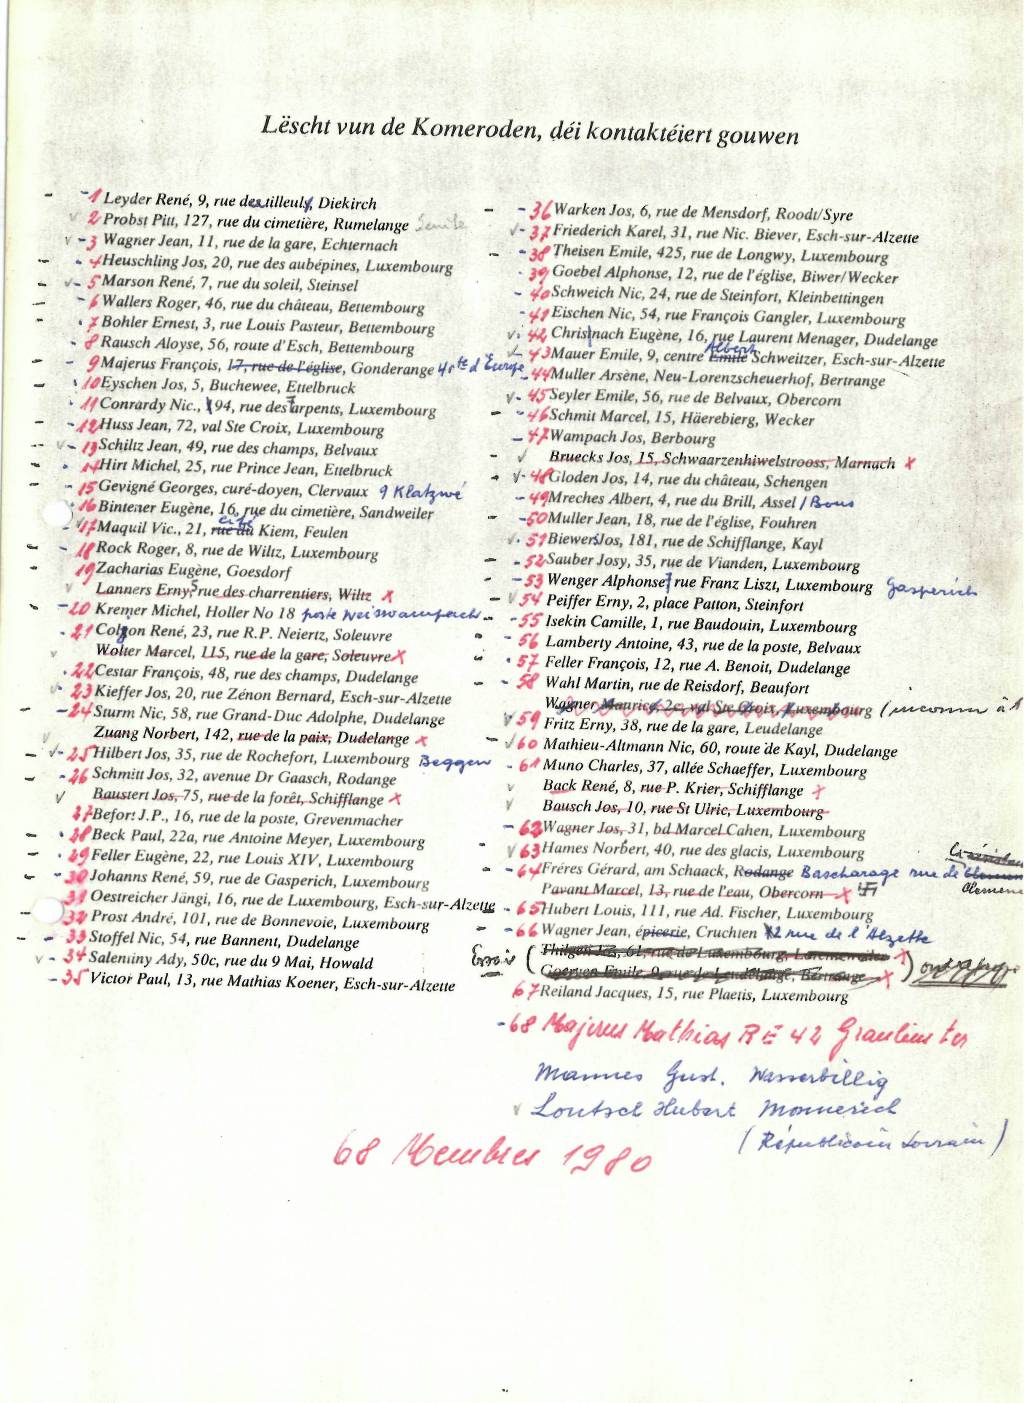 Lëscht vun de Komeroden, déi kontaktéiert gouwen
- 1 Leyder René, 9, rue des tilleuls, Diekirch
2 Probst Pitt, 127, rue du cimetière, Rumelange
- 3 Wagner Jean, 11, rue de la gare, Echternach
4 Heuschling Jos, 20, rue des aubépines, Luxembourg
- 5 Marson René, 7, rue du soleil, Steinsel
- 6 Wallers Roger, 46, rue du château, Bettembourg
7 Bohler Ernest, 3, rue Louis Pasteur, Bettembourg
8 Rausch Aloyse, 56, route d'Esch, Bettembourg
9 Majerus François, 17, rue de l'église, Gonderange 4 rte d'Europe
10 Eyschen Jos, 5, Buchewee, Ettelbruck
11 Conrardy Nic., 94, rue des 7 arpents, Luxembourg
- 12 Huss Jean, 72, val Ste Croix, Luxembourg
- 13 Schiltz Jean, 49, rue des champs, Belvaux
14 Hirt Michel, 25, rue Prince Jean, Ettelbruck
- 15 Gevigné Georges, curé-doyen, Clervaux 9 Klatzwé
16 Bintener Eugène, 16, rue du cimetière, Sandweiler
17 Maquil Vic., 21, rue du cité Kiem, Feulen
18 Rock Roger, 8, rue de Wiltz, Luxembourg
19 Zacharias Eugène, Goesdorf
Lanners Erny, 5 rue des charrentiers, Wiltz x
- 20 Kremer Michel, Holler No 18 poste Weiswampach
21 Coljon René, 23, rue R.P. Neiertz, Soleuvre
Wolter Marcel, 115, rue de la gare, Soleuvre x
22 Cestar François, 48, rue des champs, Dudelange
- 23 Kieffer Jos, 20, rue Zénon Bernard, Esch-sur-Alzette
- 24 Sturm Nic, 58, rue Grand-Duc Adolphe, Dudelange
Zuang Norbert, 142, rue de la paix, Dudelange x
- 25 Hilbert Jos, 35, rue de Rochefort, Luxembourg Beggen
- 26 Schmitt Jos, 32, avenue Dr Gaasch, Rodange
Baustert Jos, 75, rue de la forêt, Schifflange x
27 Befort J.P., 16, rue de la poste, Grevenmacher
28 Beck Paul, 22a, rue Antoine Meyer, Luxembourg
29 Feller Eugène, 22, rue Louis XIV, Luxembourg
30 Johanns René, 59, rue de Gasperich, Luxembourg
31 Oestreicher Jängi, 16, rue de Luxembourg, Esch-sur-Alzette
32 Prost André, 101, rue de Bonnevoie, Luxembourg
- 33 Stoffel Nic, 54, rue Bannent, Dudelange
- 34 Salentiny Ady, 50c, rue du 9 Mai, Howald
- 35 Victor Paul, 13, rue Mathias Koener, Esch-sur-Alzette
- 36 Warken Jos, 6, rue de Mensdorf, Roodt/Syre
- 37 Friederich Karel, 31, rue Nic. Biever, Esch-sur-Alzette
- 38 Theisen Emile, 425, rue de Longwy, Luxembourg
39 Goebel Alphonse, 12, rue de l'église, Biwer/Wecker
- 40 Schweich Nic, 24, rue de Steinfort, Kleinbettingen
- 41 Eischen Nic, 54, rue François Gangler, Luxembourg
42 Christnach Eugène, 16, rue Laurent Menager, Dudelange
- 43 Mauer Emile, 9, centre Emile Albert Schweitzer, Esch-sur-Alzette
- 44 Muller Arsène, Neu-Lorenzscheuerhof, Bertrange
- 45 Seyler Emile, 56, rue de Belvaux, Obercorn
- 46 Schmit Marcel, 15, Häerebierg, Wecker
- 47 Wampach Jos, Berbourg
Bruecks Jos, 15, Schwaarzenhiwelstrooss, Marnach x
- 48 Gloden Jos, 14, rue du château, Schengen
- 49 Mreches Albert, 4, rue du Brill, Assel / Bous
- 50 Muller Jean, 18, rue de l'église, Fouhren
51 Biewers Jos, 181, rue de Schifflange, Kayl
- 52 Sauber Josy, 35, rue de Vianden, Luxembourg
- 53 Wenger Alphonse, 7 rue Franz Liszt, Luxembourg Gasperich
54 Peiffer Erny, 2, place Patton, Steinfort
- 55 Isekin Camille, 1, rue Baudouin, Luxembourg
- 56 Lamberty Antoine, 43, rue de la poste, Belvaux
57 Feller François, 12, rue A. Benoit, Dudelange
- 58 Wahl Martin, rue de Reisdorf, Beaufort
Wagner Maurice, 2c, val Ste Croix, Luxembourg (inconnu à
59 Fritz Erny, 38, rue de la gare, Leudelange
60 Mathieu-Altmann Nic, 60, route de Kayl, Dudelange
- 61 Muno Charles, 37, allée Schaeffer, Luxembourg
Back René, 8, rue P. Krier, Schifflange x
Bausch Jos, 10, rue St Ulric, Luxembourg
- 62 Wagner Jos, 31, bd Marcel Cahen, Luxembourg
63 Hames Norbert, 40, rue des glacis, Luxembourg
- 64 Fréres Gérard, am Schaack, Rodange Bascharage rue de
Pavant Marcel, 13, rue de l'eau, Obercorn x
- 65 Hubert Louis, 111, rue Ad. Fischer, Luxembourg
- 66 Wagner Jean, épicerie, Cruchten 12 rue de l'Alzette
Thilgen Jos, 61, rue de Luxembourg, x
Goergen Emile, 9, rue de Leudelange, Bertrange x
67 Reiland Jacques, 15, rue Plaetis, Luxembourg
- 68 Majerus Mathias RE 42 Graulinster
Mannes Gust. Wasserbillig
Loutsch Hubert Monnerich
(Républicain Lorrain)
68 Membres 1980